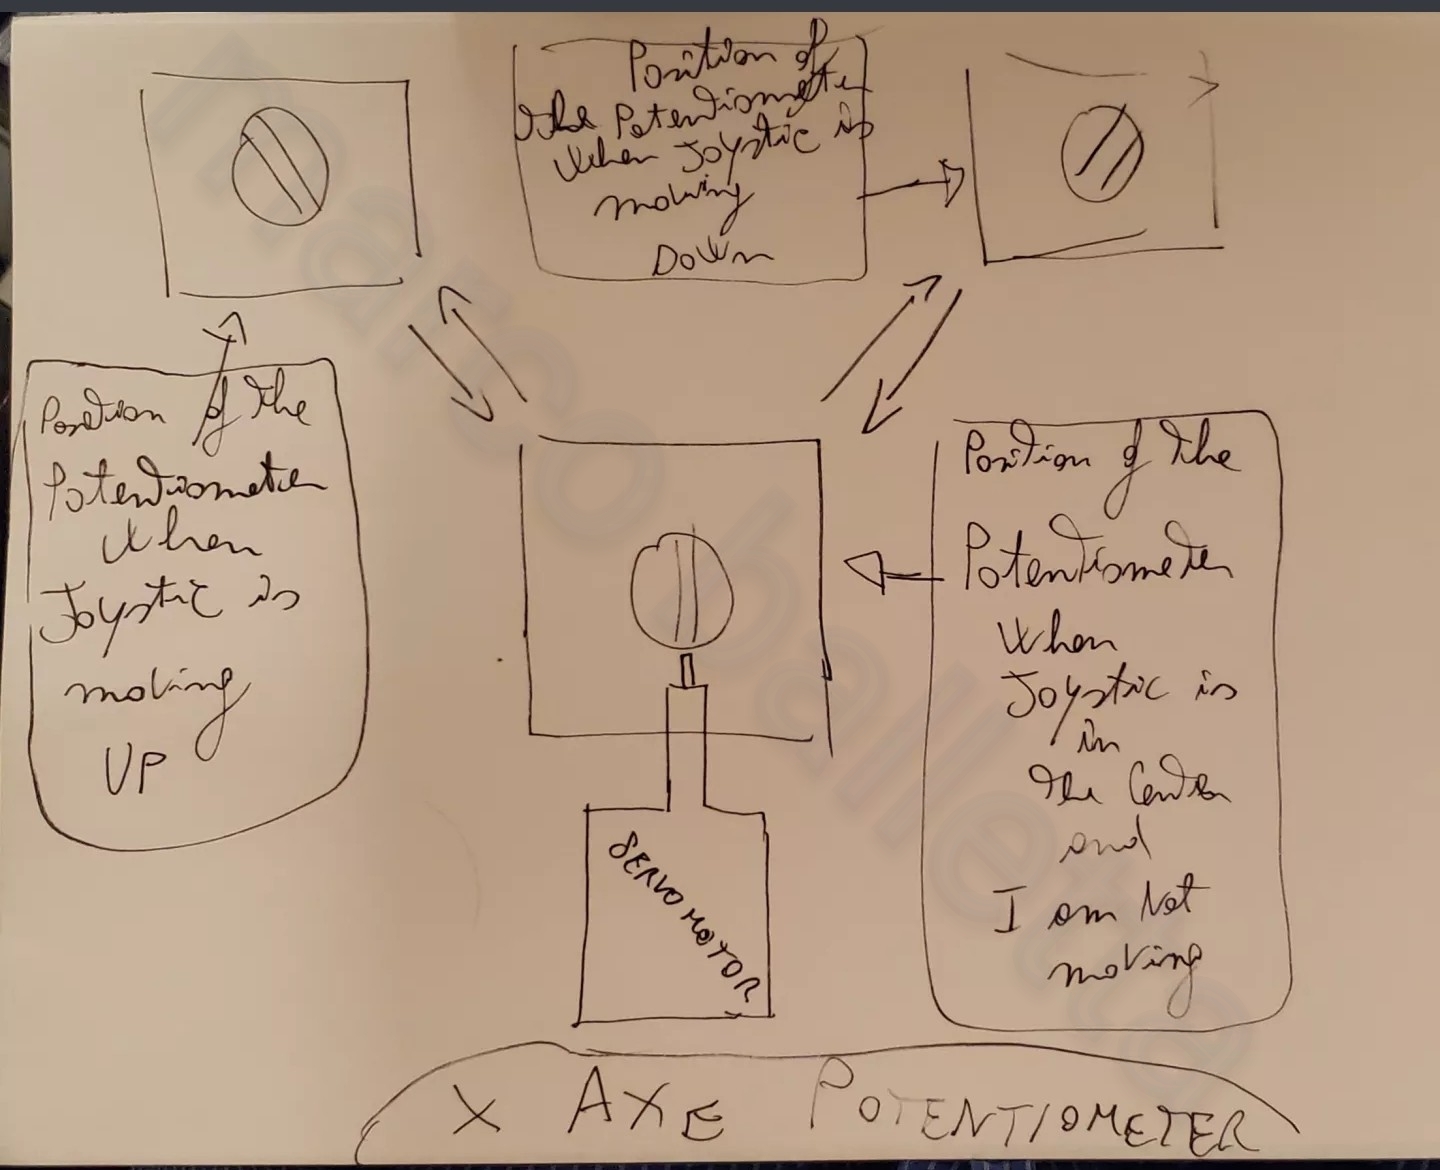 Position of
the Potentiometer
when Joystic is
moving
DOWN
Position of the
Potentiometer
When
Joystic is
moving
UP
Position of the
Potentiometer
When
Joystic is
in
the Center
and
I am Not
moving
SERVOMOTOR
X AXE POTENTIOMETER
marco ballette